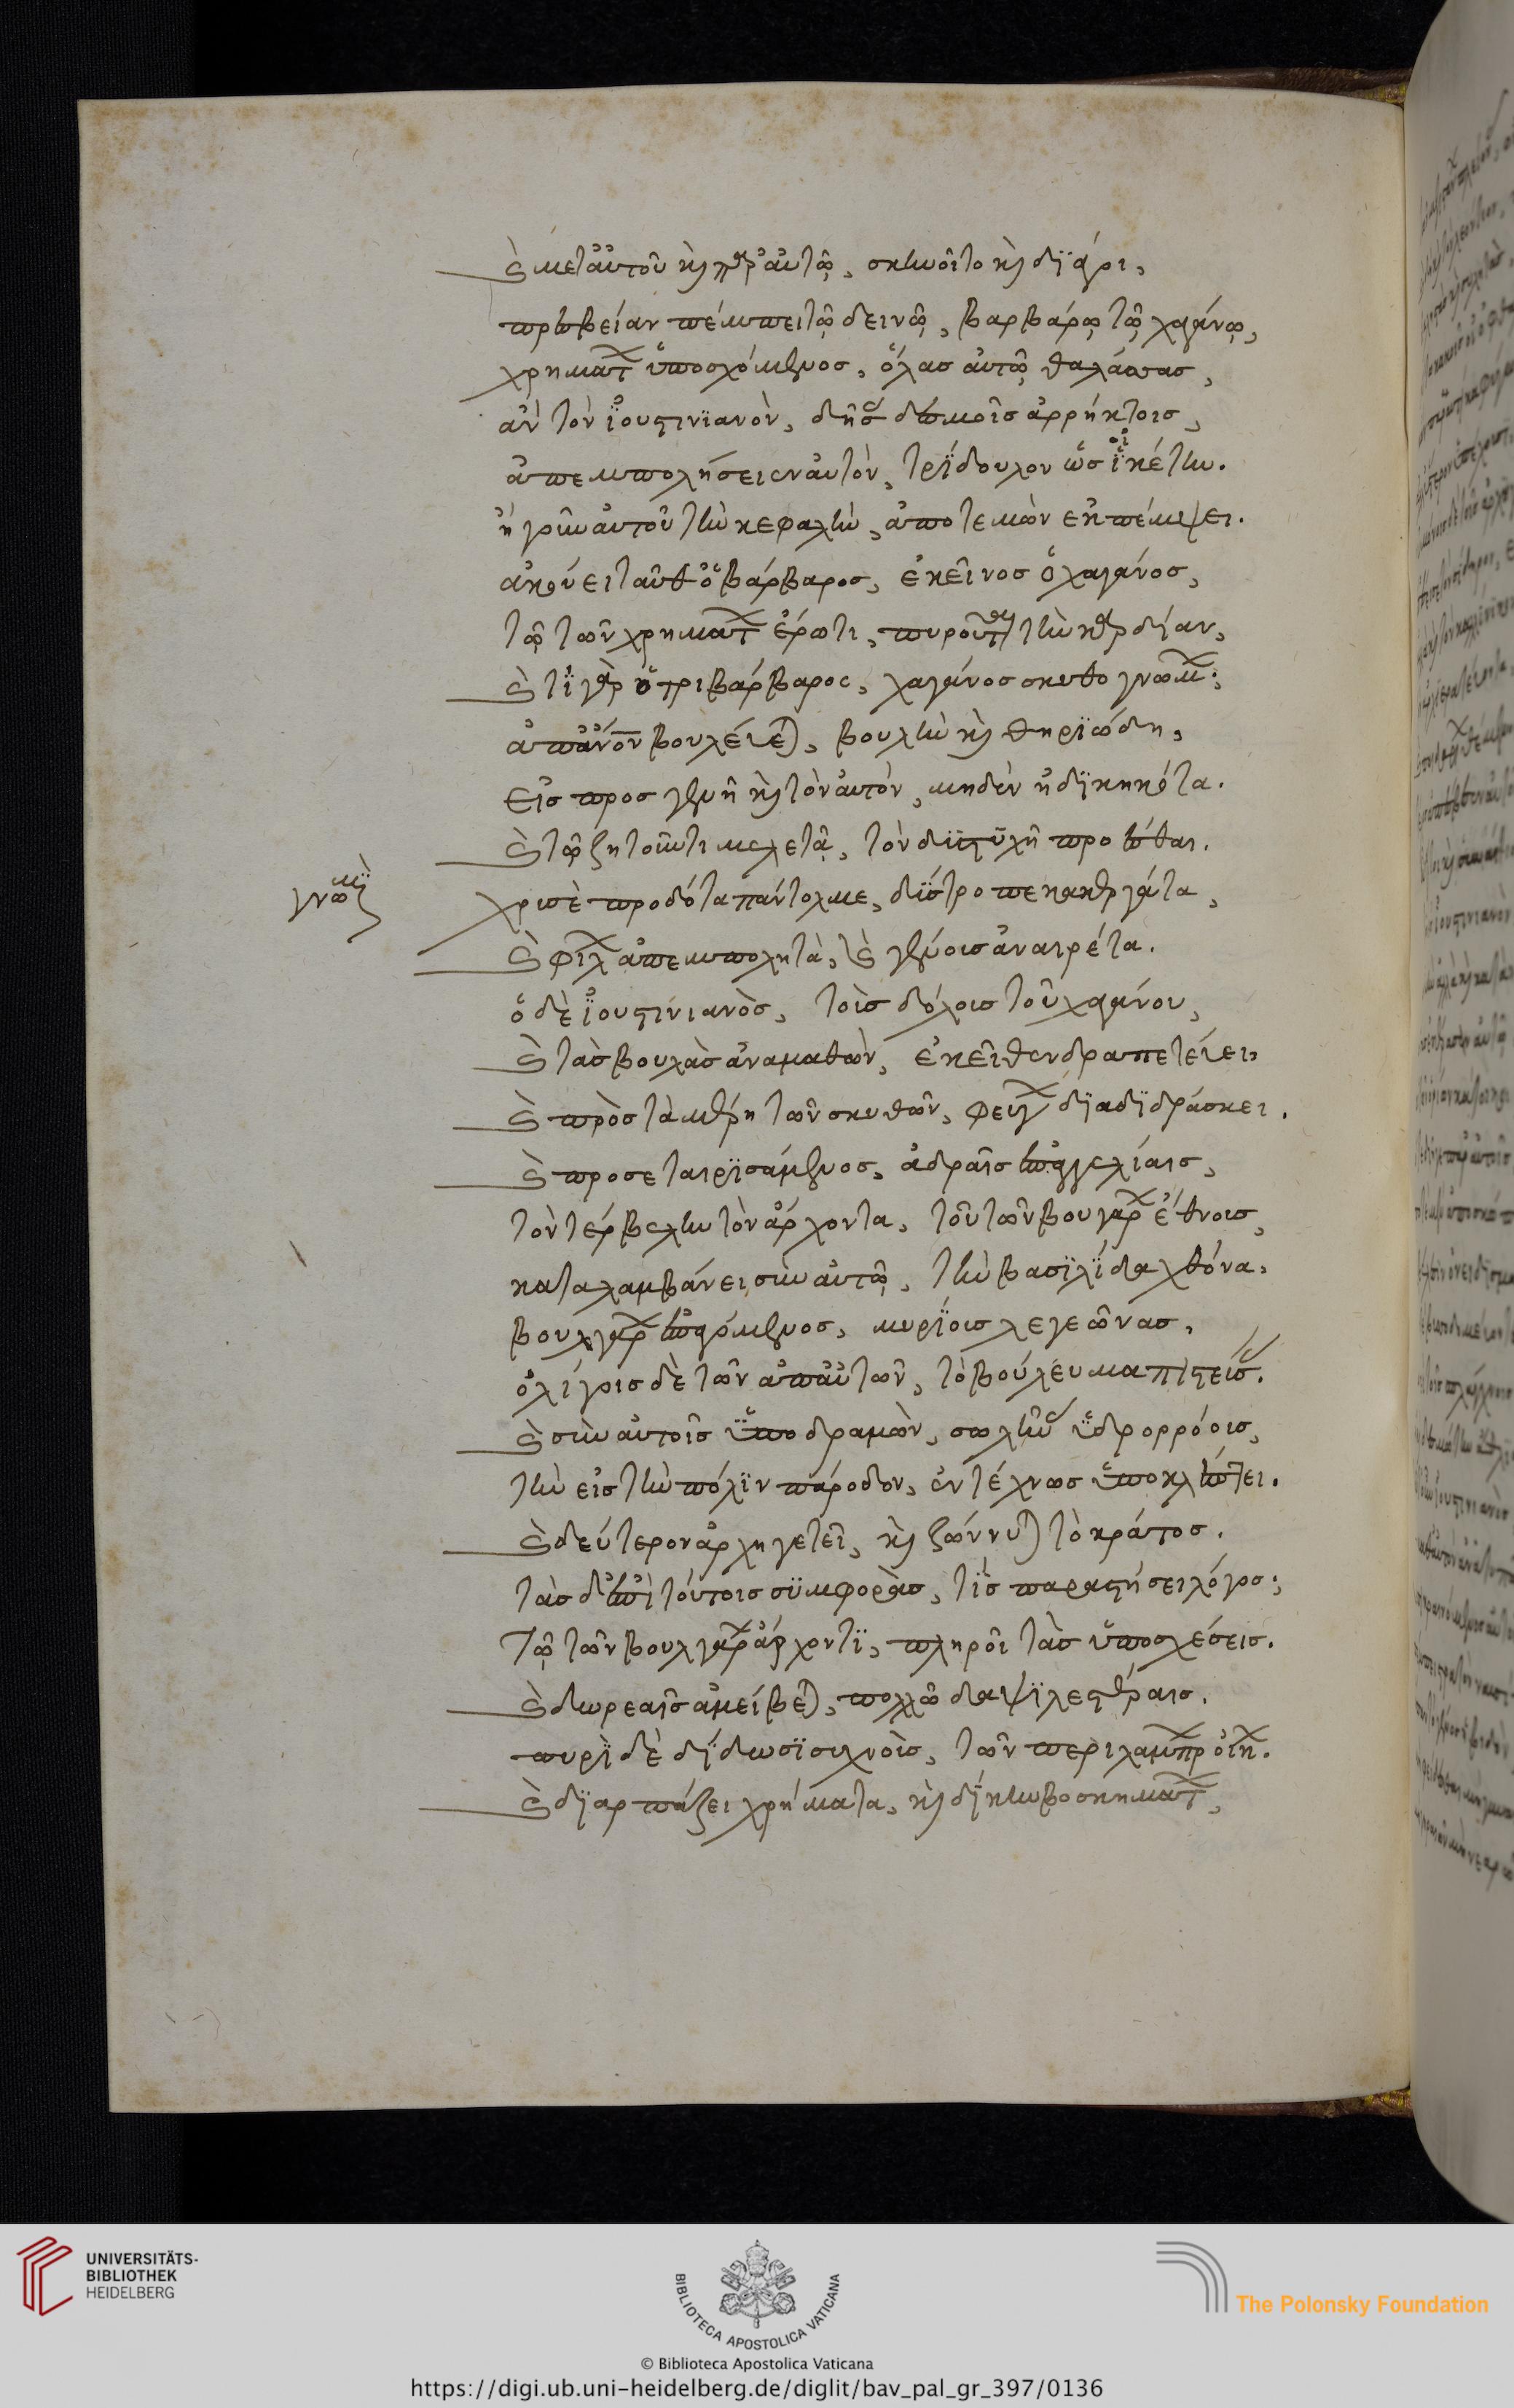 Καὶ μετ' αὐτοῦ καὶ παρ' αὐτῶ, σκηνοῖτο καὶ διάγοι,
πρεσβείαν πέμπει τῶ δεινῶ, βαρβάρω τῶ χαγάνω,
χρημάτων ὑποσχόμενος, ὅλας αὐτῶ θαλάσσας,
ἂν τὸν ἰουστινιανὸν, δήσας δεσμοῖς ἀρρήκτοις,
ἀπεμπολήσειεν αὐτὸν, τρίδουλον ὡς ἱκέτην.
ἢ γοῦν αὐτοῦ τὴν κεφαλὴν, ἀποτεμὼν ἐκπέμψει.
ἀκούει ταῦθ' ὁ βάρβαρος, ἐκεῖνος ὁ χαγάνος,
τῶ τῶν χρημάτων ἔρωτι, πυροῦται τὴν καρδίαν,
Καὶ τί γὰρ ὁ τριβάρβαρος, χαγάνος σκυθογνώμων;
ἀπάνθρωπον βουλεύεται, βουλὴν καὶ θηριώδη,
εἰς προσγενῆ καὶ τὸν αὐτὸν, μηδὲν ἠδικηκότα.
Καὶ τῶ ζητοῦντι μελετᾶ, τὸν δυστυχῆ προέσθαι.
γνώμη
χρυσὲ προδότα πάντολμε, δύστροπε κακεργάτα,
Καὶ φίλων ἀπεμπολητὰ, καὶ γένους ἀναιρέτα.
ὁ δὲ ἰουστινιανὸς, τοὺς δόλους τοῦ χαγάνου,
Καὶ τὰς βουλὰς ἀναμαθὼν, ἐκεῖθεν δραπετεύει,
Καὶ πρὸς τὰ μέρη τῶν σκυθῶν, φεύγων διαδιδράσκει.
Καὶ προσεταιρισάμενος, ἁδραῖς ἐπαγγελίαις,
τὸν τέρβελην τὸν ἄρχοντα, τοῦ τῶν βουλγάρων ἔθνους,
καταλαμβάνει σὺν αὐτῶ, τὴν βασιλίδα χθόνα.
βουλγάρων ἐπαγόμενος, μυρίους λεγεῶνας,
ὀλίγοις δὲ τῶν ἀπ' αὐτῶν, τὸ βούλευμα πιστεύσας.
Καὶ σὺν αὐτοῖς ὑποδραμὼν, σωλῆνας ὑδρορρόους,
τὴν εἰς τὴν πόλιν πάροδον, ἐντέχνως ὑποκλέπτει.
Καὶ δεύτερον ἀρχηγετεῖ, καὶ ζώννυται τὸ κράτος.
τὰς δ' ἐπὶ τούτοις συμφορὰς, τίς παραστήσει λόγος;
τῶ τῶν βουλγάρων ἄρχοντι, πληροῖ τὰς ὑποσχέσεις.
Καὶ δωρεαῖς ἀμείβεται, πολλῶ δαψιλεστέραις.
πυρὶ δὲ δίδωσι συχνοὺς, τῶν περιλάμπρων οἴκων.
Καὶ διαρπάζει χρήματα, καὶ δίκην βοσκημάτων,
UNIVERSITÄTS-
BIBLIOTHEK
HEIDELBERG
BIBLIOTECA APOSTOLICA VATICANA
The Polonsky Foundation
© Biblioteca Apostolica Vaticana
https://digi.ub.uni-heidelberg.de/diglit/bav_pal_gr_397/0136